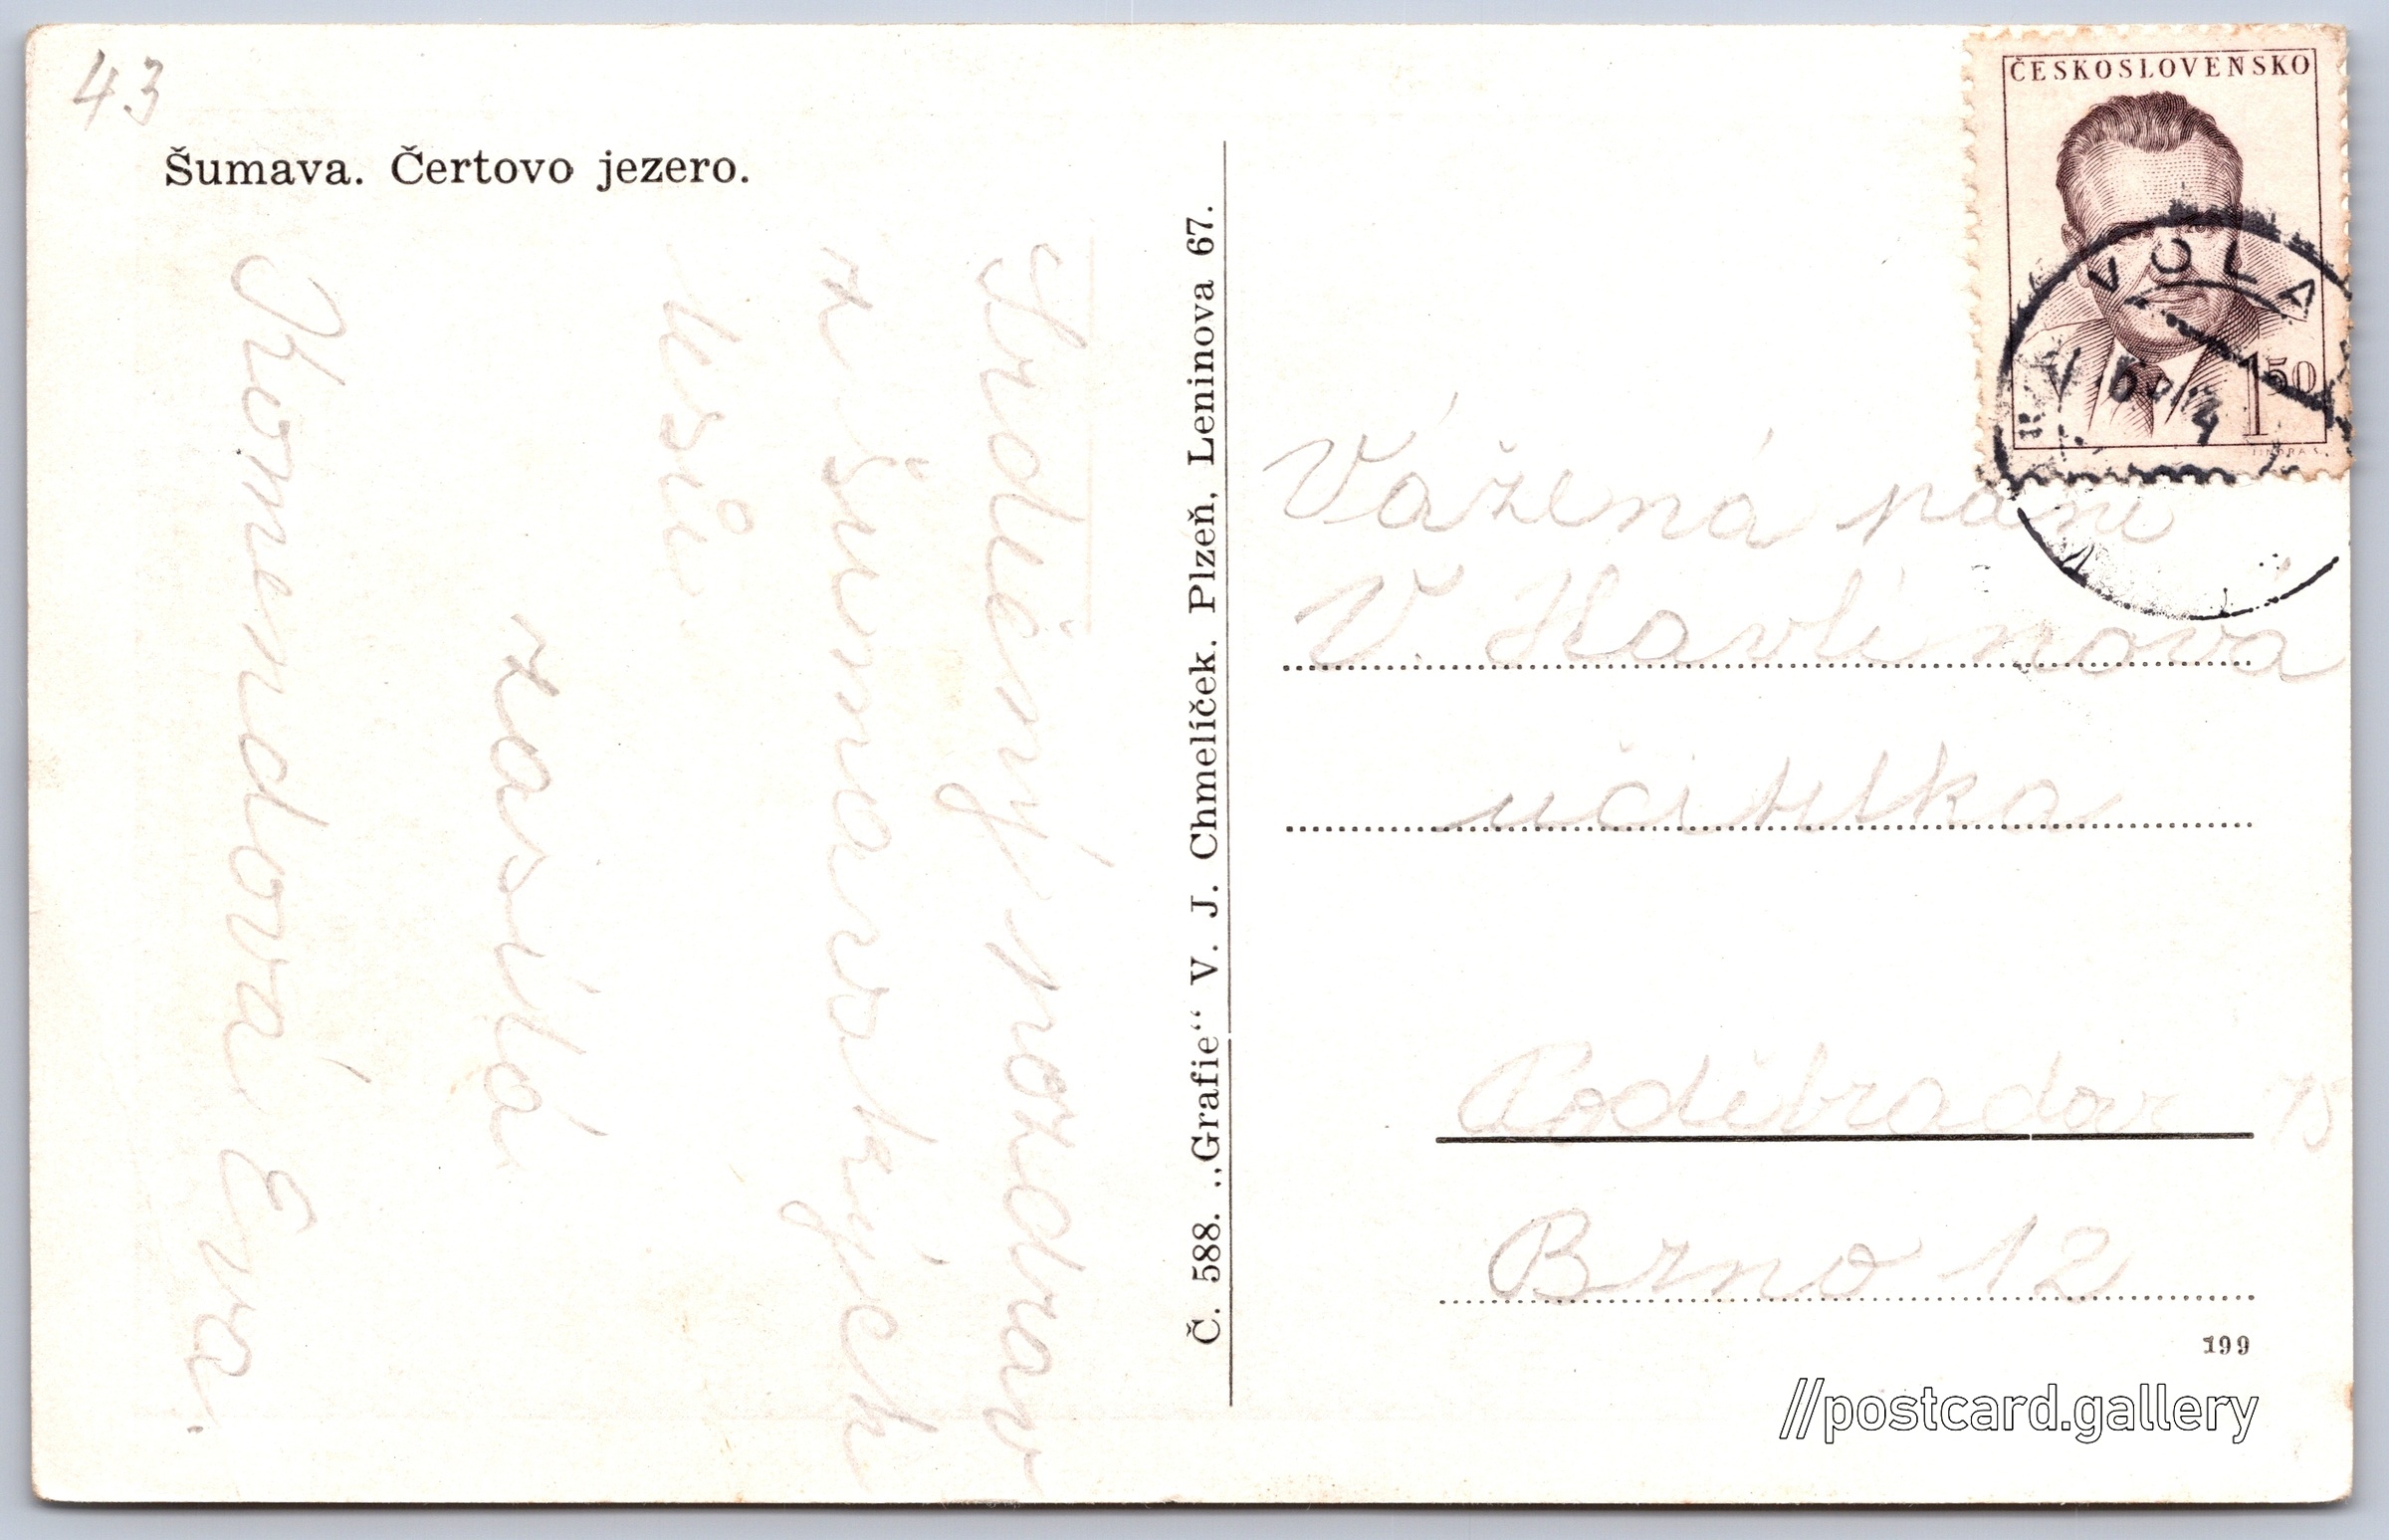 43
Šumava. Čertovo jezero.
Srdečný pozdrav
z šumavských
lesů
zasílá
Komendová Eva.
Č. 588. „Grafie“ V. J. Chmelíček. Plzeň, Leninova 67.
ČESKOSLOVENSKO
1 50
VOLA
Vážená paní
V. Havlínová
učitelka
Poděbradova 75
Brno 12
199
//postcard.gallery